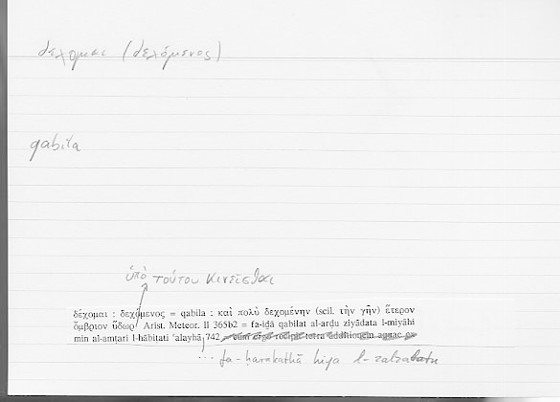 δεχομαι (δεχόμενος)
qabila
ὑπὸ τούτου κινεῖσθαι
δέχομαι : δεχόμενος = qabila : καὶ πολὺ δεχομένην (scil. τὴν γῆν) ἕτερον
ὄμβριον ὕδωρ Arist. Meteor. II 365b2 = fa-iḏā qabilat al-arḍu ziyādata l-miyāhi
min al-amṭari l-hābiṭati ʿalayhā 742 – cum ergo recipit terra additionem aquae ex
... fa-ḥarakathā hiya l-zalzalatu